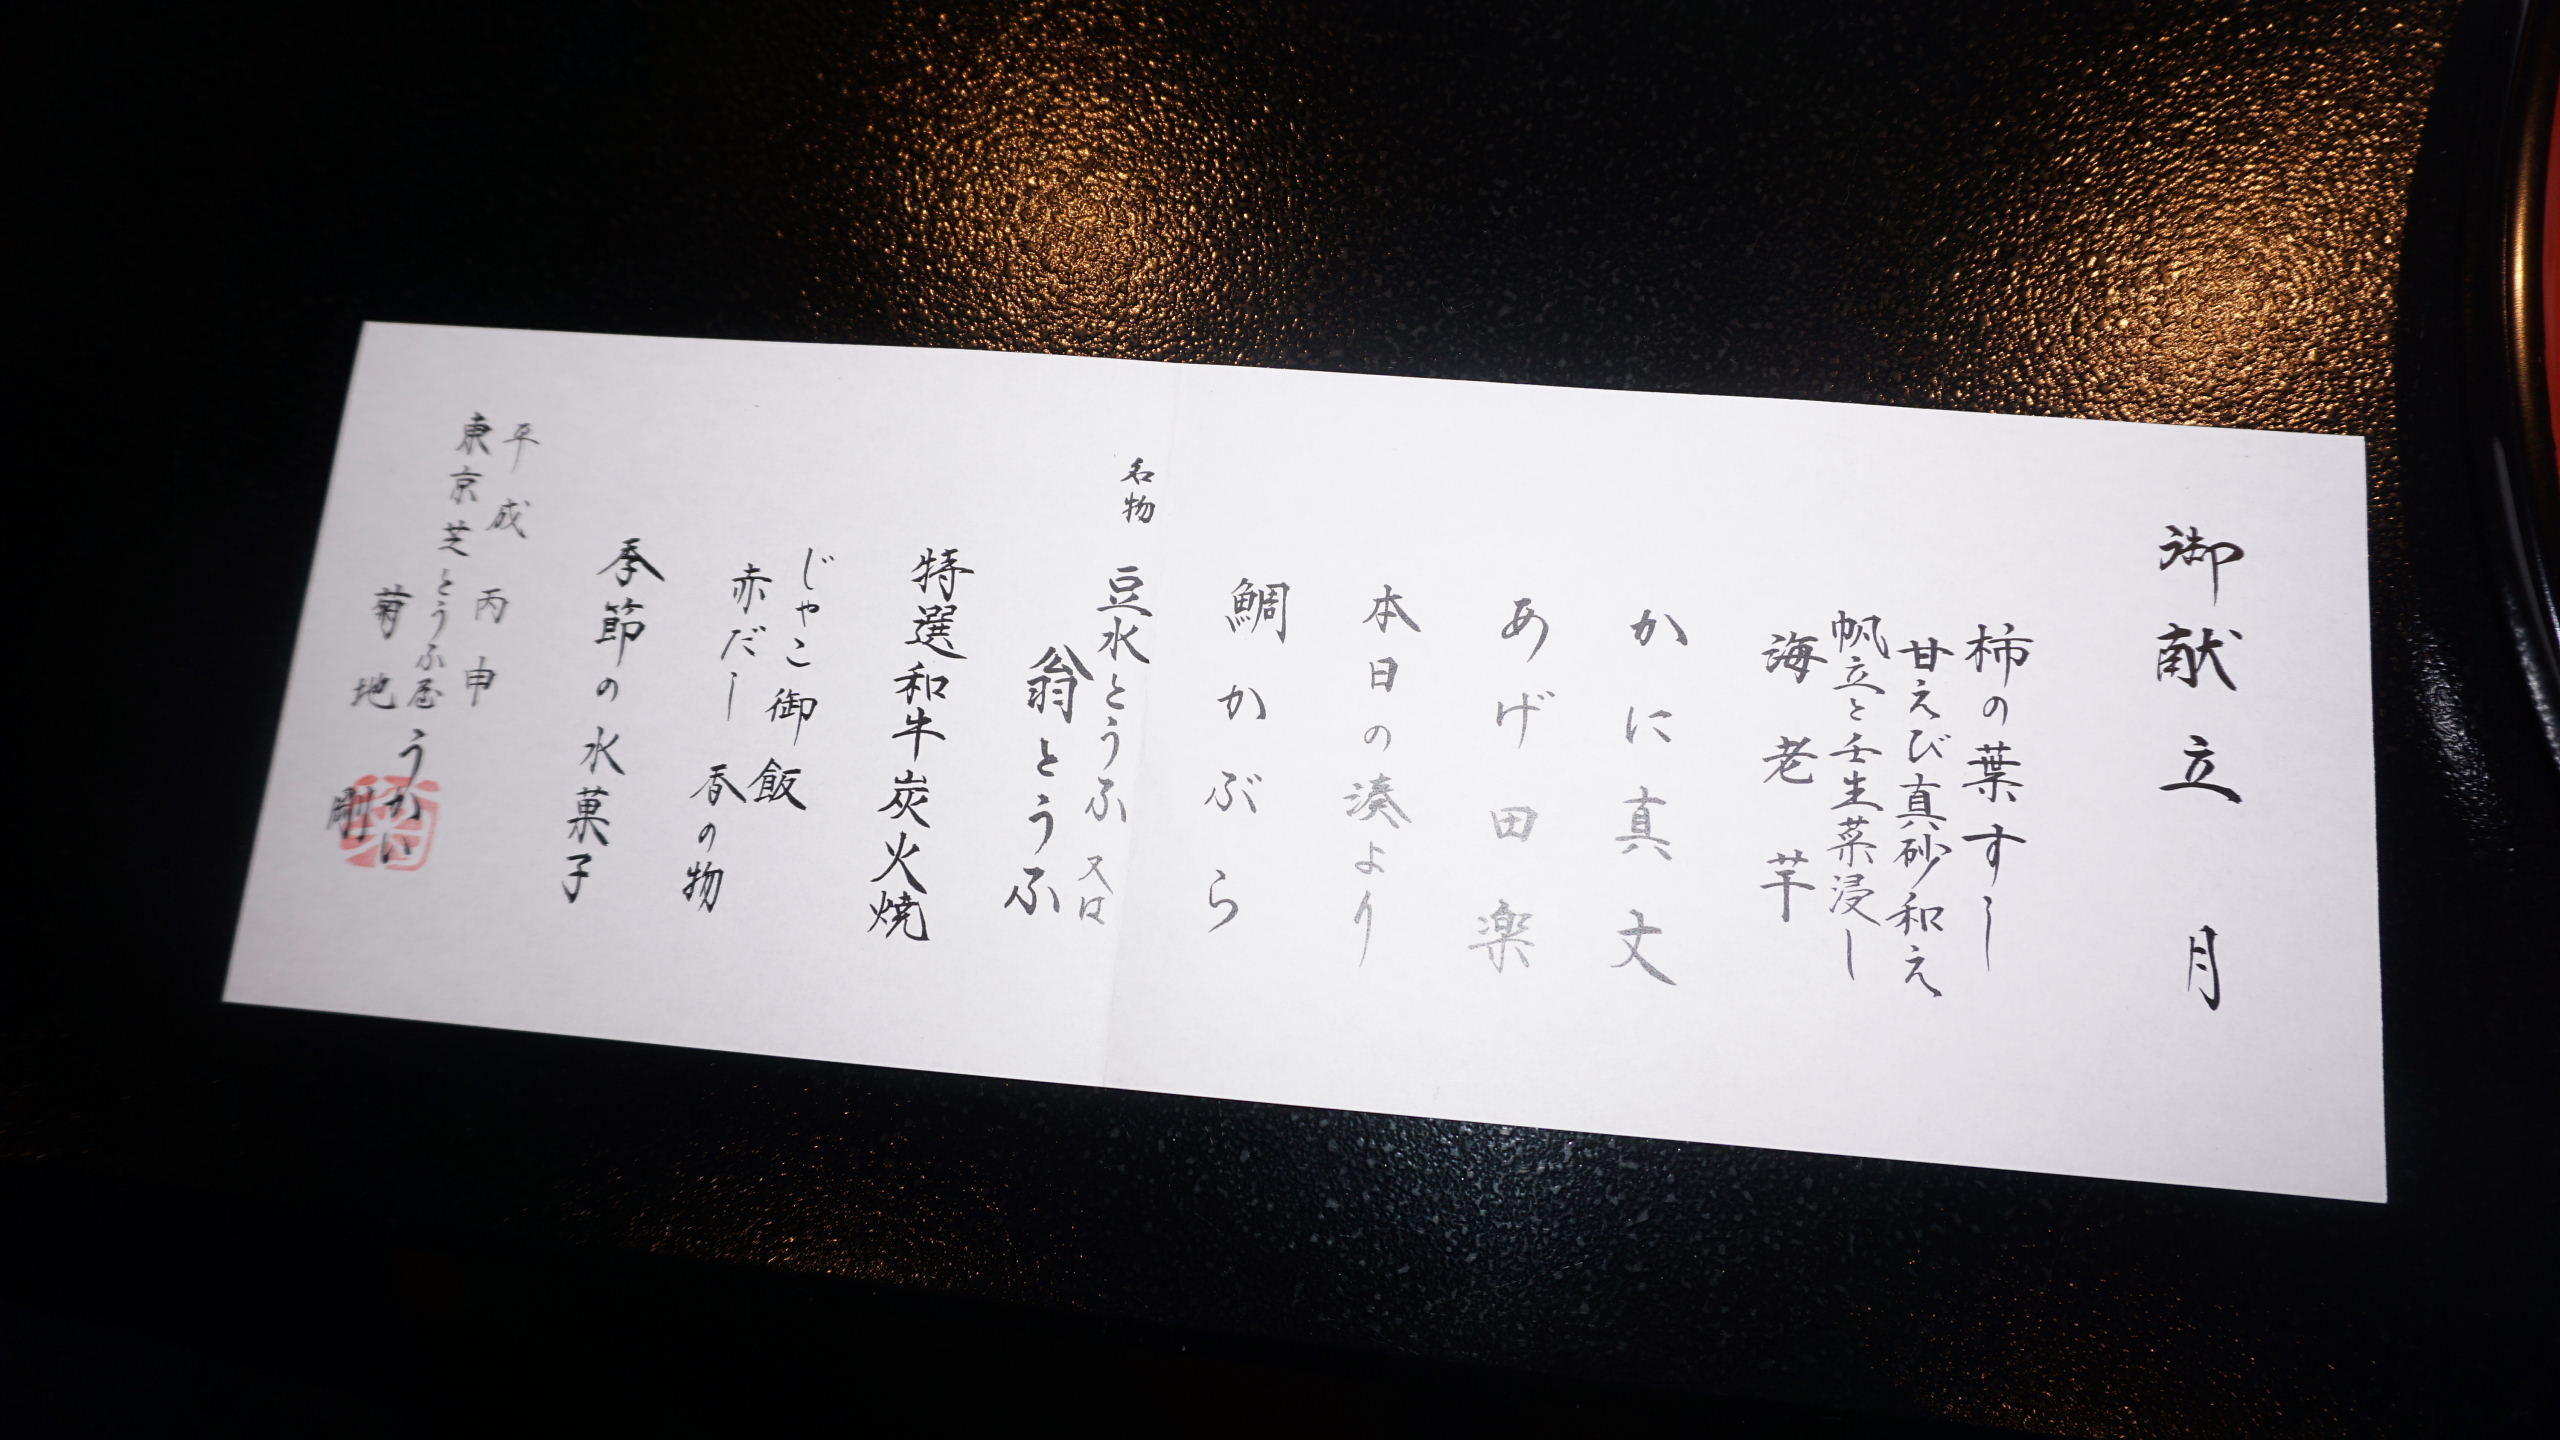 御献立 月
柿の葉すし
甘えび真砂和え
帆立と壬生菜浸し
海老芋
かに真丈
あげ田楽
本日の湊より
鯛かぶら
名物 豆水とうふ 又は
翁とうふ
特選和牛炭火焼
じゃこ御飯
赤だし 香の物
季節の水菓子
平成 丙申
東京芝とうふ屋うかい
菊地 剛